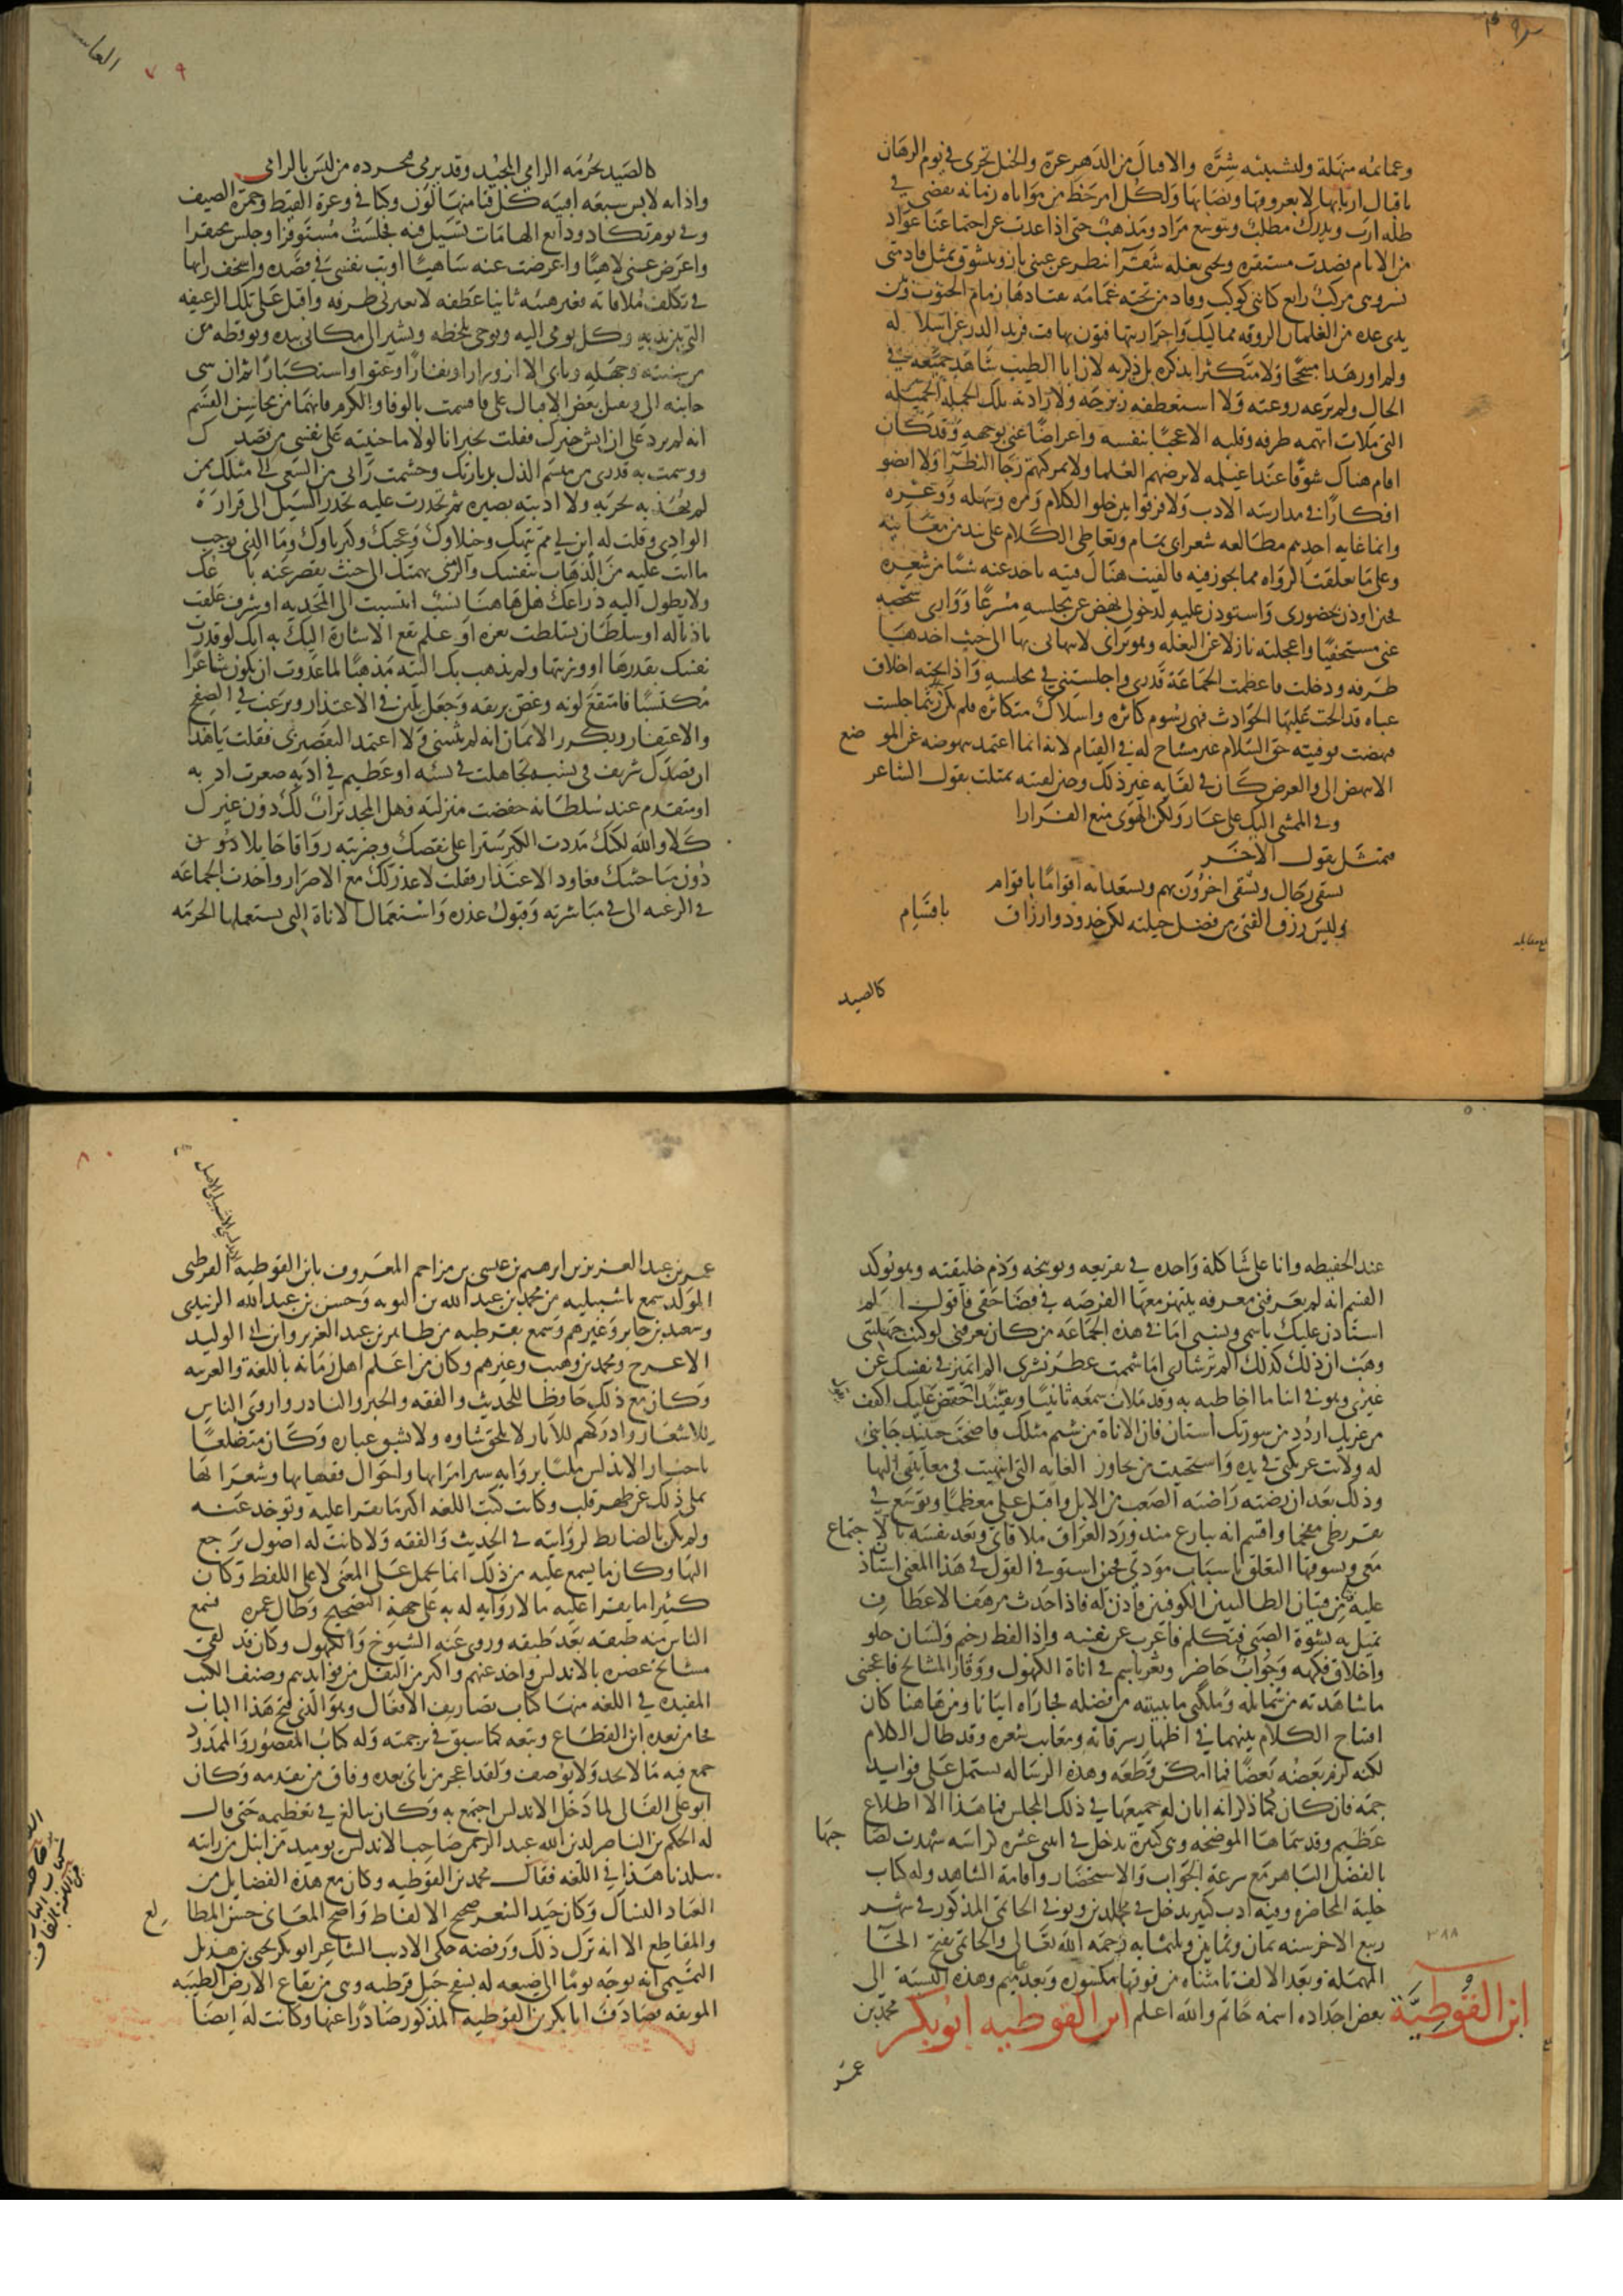 وغمائمه منهلة ولشبيبته شرة والاقبال من الدهر غرة والخيل تجرى فى يوم الرهان
باقبال اربابها لا بعروقها ونصابها ولكل امر حظ من مواتاه زمانه يقضى فى
ظله ارب ويدرك مطلب ويتوسع مراد ومذهب حتى اذا عدت عن اجتماعنا عواد
من الايام قصدت مستقره وتحتى بغلة شقرا تنظر عن عينى باز وتتشوق بمثل قادمتى
نسر وهى مركب رايع كانى كوكب وقاد من تحته غمامه يقتادها زمام الجنوب وبين
يدى عدة من الغلمان الروقه مماليك واحرار يتهافتون تهافت فريد الدر عن اسلاكه
ولم اورد هذا متبجحا ولا متكثرا بذكره بل ذكرته لان ابا الطيب شاهد جميعه فى
الحال ولم ترعه روعته ولا استعطفه زبرجه ولا زادته تلك الجملة الجميله
التى ملات طرفه وقلبه الا عجبا بنفسه واعراضا عنى بوجهه وقد كان
اقام هناك سوقا عند اغيلمه لم ترضهم العلما ولا عركتهم رحا النظرا ولا انضوا
افكارا فى مدارسه الادب ولا فرقوا بين حلو الكلام ومره وسهله ووعره
وانما غايه احدهم مطالعه شعر ابى تمام وتعاطى الكلام على نبذ من معانيه
وعلى ما تعلقت الرواه مما يجوز فيه فالفيت هناك فتيه ياخذ عنه شيا من شعره
فحين اوذن بحضورى واستوذن عليه لدخولى نهض عن مجلسه مسرعا ووارى شخصه
عنى مستخفيا واعجلته نازلا عن البغله وهو يرانى لانتهائى بها الى حيث اخذها
طرفه ودخلت فاعظمت الجماعة قدرى واجلستنى فى مجلسه واذا تحته اخلاق
عباه قد الحت عليها الحوادث فهى رسوم داثره واسلاك متناثره فلم يكن الا ريثما جلست
فنهضت فوفيته حق السلام غير مشاح له فى القيام لانه انما اعتمد بنهوضه عن الموضع
الا ينهض الى والغرض كان فى لقايه غير ذلك وحين لقيته تمثلت بقول الشاعر
وفى الممشى اليك على عار ولكن الهوى منع القرارا
فتمثل بقول الاخر
يشقى رجال ويشقى اخرون بهم ويسعد الله اقواما باقوام
وليس رزق الفتى من فضل حيلته لكن حدود وارزاق باقسام
كالصيد
كالصيد يحرمه الرامى المجيد وقد يرمى فيحرزه من ليس بالرامى
واذا به لابس سبعه اقبيه كل قبا منها لون وكنا فى وغرة القيظ وجمرة الصيف
وفى يوم تكاد ودايع الهامات تسيل فيه فجلست مستوفزا وجلس محتفزا
واعرض عنى لاهيا واعرضت عنه ساهيا اونب نفسى فى قصده واستخف رايها
فى تكلف ملاقاته فغبر هنيه ثانيا عطفه لا يعيرنى طرفه واقبل على تلك الزعنفه
التى بين يديه وكل يومى اليه ويوحى بلحظه ويشير الى مكانى بيده ويوقظه من
من سنته وجهله ويابى الا ازورارا ونفارا وعتوا واستكبارا ثم ان ثنى
جانبه الى ويقبل بعض الاقبال على فاقسمت بالوفا والكرم فانهما من محاسن القسم
انه لم يزد على ان ايش خبرك فقلت بخير انا لولا ما جنيته على نفسى من قصدك
ووسمت به قدرى من ميسم الذل بزيارتك وجشمت رايى من السعى الى مثلك ممن
لم تهذبه تجربه ولا ادبته بصيره ثم تحدرت عليه تحدر السيل الى قرارة
الوادى وقلت له ابن لى مم تيهك وخيلاوك وعجبك وكبرياوك وما الذى يوجب
ما انت عليه من الذهاب بنفسك والرمى بهمتك الى حيث يقصر عنه باعك
ولا يطول اليه ذراعك هل هاهنا نسب انتسبت الى المجد به او شرف علقت
باذياله او سلطان تسلطت بعزه او علم تقع الاشارة اليك به انك لو قدرت
نفسك بقدرها او وزنتها ولم يذهب بك التيه مذهبا لما عدوت ان تكون شاعرا
مكتسبا فامتقع لونه وغص بريقه وجعل يلين فى الاعتذار ويرغب فى الصفح
والاغتفار ويكرر الايمان انه لم يثبتنى ولا اعتمد التقصير بى فقلت يا هذا
ان قصدك شريف فى نسبه تجاهلت فى نسبه او عظيم فى ادبه صغرت ادبه
او متقدم عند سلطانه خفضت منزلته فهل المجد تراث لك دون غيرك
كلا والله لكنك مددت الكبر سترا على نقصك وضربته رواقا حايلا دون
دون مباحثتك فعاود الاعتذار فقلت لا عذر لك مع الاصرار واخذت الجماعه
فى الرغبه الى فى مياسرته وقبول عذره واستعمال الاناة التى يستعملها الحزمه
عند الحفيظه وانا على شاكلة واحده فى تقريعه وتوبيخه وذم خليقته وهو يوكد
القسم انه لم يعرفنى معرفه ينتهز معها الفرصه فى قضا حقى فاقول الم
استاذن عليك باسمى ونسبى اما فى هذه الجماعه من كان يعرفنى لو كنت جهلتنى
وهب ان ذلك كذلك الم تر شارتى اما شممت عطر نشرى الم اتميز فى نفسك عن
غيرى وهو فى اثنا ما اخاطبه به وقد ملات سمعه تانيبا وتفنيدا خفض عليك اكفف
من غربك اردد من سورتك استان فان الاناة من شيم مثلك فاصحب حينيذ جانبى
له ولانت عريكتى فى يده واستحييت من تجاوز الغايه التى انتهيت فى معاتبتى اليها
وذلك بعد ان رضته رياضه الصعب من الابل واقبل على معظما وتوسع فى
تقريظى مفخما واقسم انه ينازع منذ ورد العراق ملاقاتى ويعد نفسه بالاجتماع
معى ويسوفها التعلق باسباب مودتى فحين استوفى القول فى هذا المعنى استاذن
عليه فتى من فتيان الطالبيين الكوفيين فاذن له فاذا حدث مرهف الاعطاف
تميل به نشوة الصبى فتكلم فاعرب عن نفسه واذا لفظ رخيم ولسان حلو
واخلاق فكهه وجواب حاضر وثغر باسم فى اناة الكهول ووقار المشايخ فاعجبنى
ما شاهدته من شمايله وملكنى ما تبينته من فضله فجاراه ابياتا ومن هاهنا كان
افتتاح الكلام بينهما فى اظهار سرقاته ومعايب شعره وقد طال الكلام
لكنه لزم بعضه بعضا فما امكن قطعه وهذه الرساله تشتمل على فوايد
جمه فان كان كما ذكر انه ابان له جميعها فى ذلك المجلس فما هذا الا اطلاع
عظيم وقد سماها الموضحه وهى كبيرة تدخل فى اثنى عشره كراسه شهدت لصاحبها
بالفضل الباهر مع سرعة الجواب والاستحضار واقامة الشاهد وله كتاب
حلية المحاضره وفيه ادب كبير يدخل فى مجلدين وتوفى الحاتمى المذكور فى شهر
ربيع الاخر سنه ثمان وثمانين وثلثمايه رحمه الله تعالى والحاتمى بفتح الحا ٣٨٨
المهملة وبعد الالف تا مثناه من فوقها مكسوره وبعدها ميم وهذه النسبة الى
ابن القُوطِيَّة
بعض اجداده اسمه حاتم والله اعلم ابن القوطيه ابوبكر محمد بن
عمر
عمر بن عبد العزيز بن ابرهيم بن عيسى بن مزاحم المعروف بابن القوطيه القرطبى
الاندلسى الاشبيلى الاصل
المولد سمع باشبيليه من محمد بن عبد الله بن القوبه وحسن بن عبد الله الزبيدى
وسعيد بن جابر وغيرهم وسمع بقرطبه من طاهر بن عبد العزيز وابن ابى الوليد
الاعرج ومحمد بن وهب وغيرهم وكان من اعلم اهل زمانه باللغة والعربيه
وكان مع ذلك حافظا للحديث والفقه والخبر والنادر واروى الناس
للاشعار وادركهم للاثار لا يلحق شاوه ولا يشق غباره وكان متضلعا
باخبار الاندلس مليا بروايه سير امرايها واحوال فقهايها وشعرايها
يملى ذلك عن ظهر قلب وكانت كتب اللغه اكثر ما تقرا عليه وتوخذ عنه
ولم يكن بالضابط لروايته فى الحديث والفقه ولا كانت له اصول يرجع
اليها وكان ما يسمع عليه من ذلك انما يحمل على المعنى لا على اللفظ وكان
كثيرا ما يقرا عليه ما لا روايه له به على جهة التصحيح وطال عمره فسمع
الناس منه طبقه بعد طبقه وروى عنه الشيوخ والكهول وكان قد لقى
مشايخ عصره بالاندلس واخذ عنهم واكثر من النقل من فوايدهم وصنف الكتب
المفيده فى اللغه منها كتاب تصاريف الافعال وهو الذى فتح هذا الباب
فجا من بعده ابن القطاع وتبعه كما سبق فى ترجمته وله كتاب المقصور والممدود
جمع فيه ما لا يحد ولا يوصف ولقد اعجز من ياتى بعده وفاق من تقدمه وكان
ابو على القالى لما دخل الاندلس اجتمع به وكان يبالغ فى تعظيمه حتى قال
له الحكم بن الناصر لدين الله عبد الرحمن صاحب الاندلس يوميذ من انبل من رايته
ببلدنا هذا فى اللغه فقال محمد بن القوطيه وكان مع هذه الفضايل من
العباد النساك وكان جيد الشعر صحيح الالفاظ واضح المعانى حسن المطالع
والمقاطع الا انه ترك ذلك ورفضه حكى الاديب الشاعر ابو بكر يحيى بن هذيل
التميمى انه توجه يوما الى ضيعه له بسفح جبل قرطبه وهى من بقاع الارض الطيبه
المونقه فصادف ابا بكر بن القوطيه المذكور صادرا عنها وكانت له ايضا